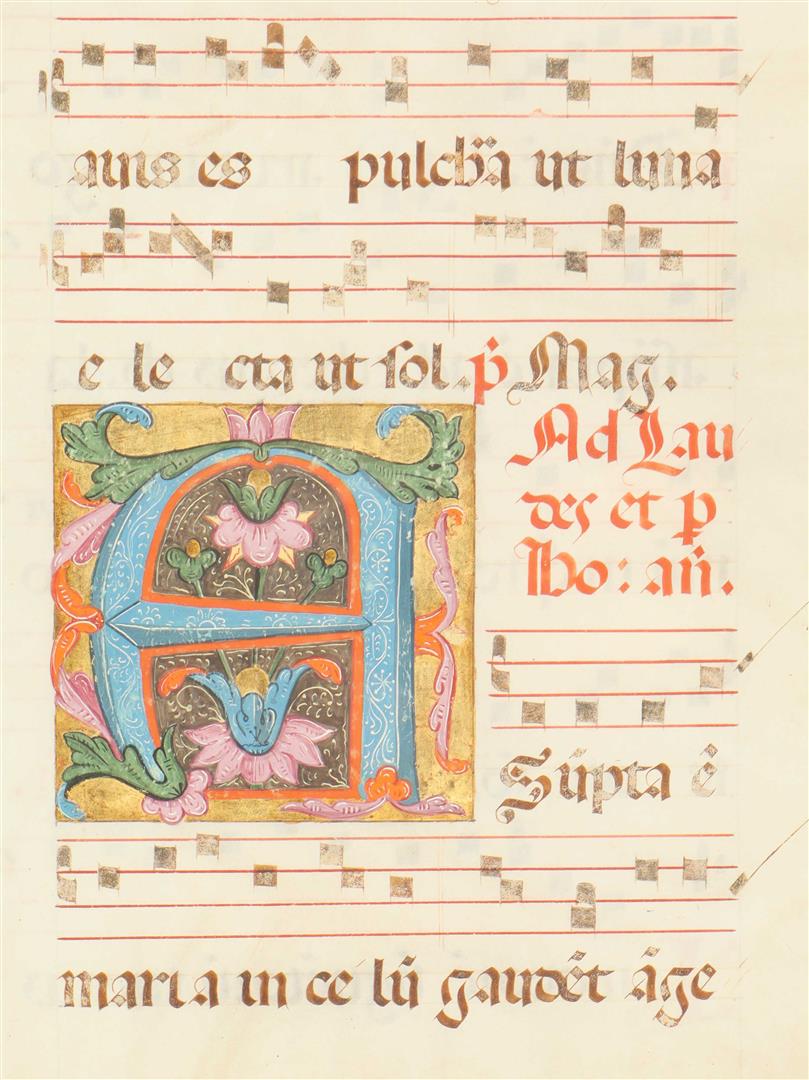 auis es pulchࣵra ut luna
e le cta ut sol. p̃ Mag.
Ad Lau
des et p
Ho: añ.
A
Sũpta ẽ
maria in ce lũ gaudẽt ãge